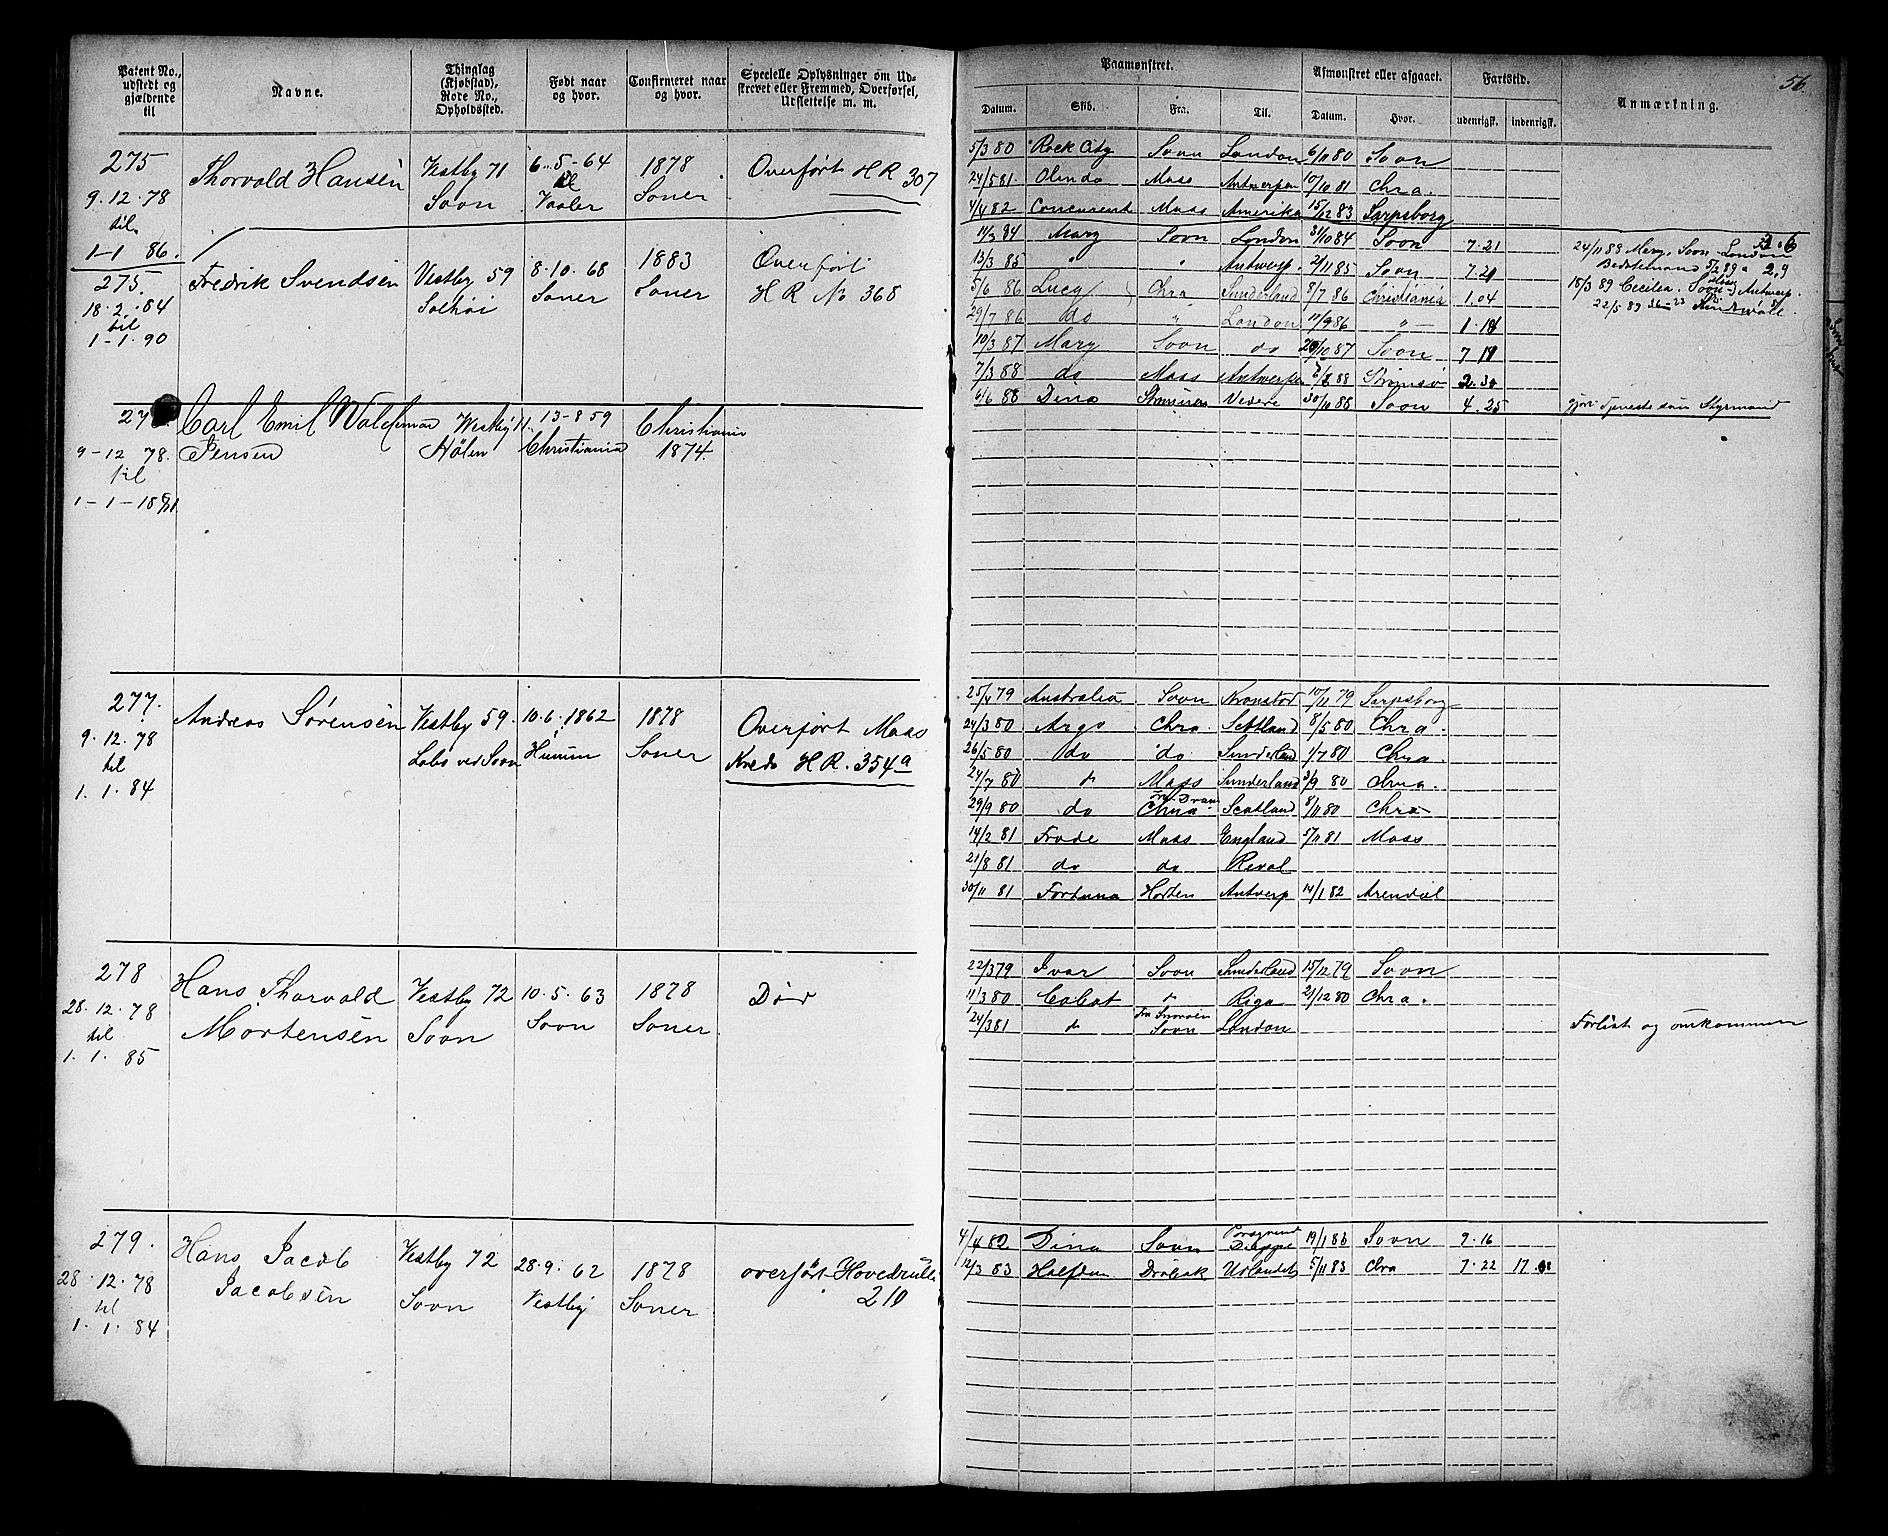 56
Patent No., udstedt og gjældende til
Navne.
Thinglag (Kjøbstad), Rore No., Opholdssted.
Født naar og hvor.
Confirmeret naar og hvor.
Specielle Oplysninger om Udskrevet eller Fremmed, Overførsel, Udslettelse m. m.
Paamønstret.
Afmønstret eller afgaaet.
Fartstid.
Anmærkning.
Datum.
Skib.
Fra.
Til.
Datum.
Hvor.
udenrigsk.
indenrigsk.
275
9.12.78
til
1-1 86.
Thorvald Hansen
Vestby 71
Soon
6-5-64
Vaaler
1878
Soner
Overført HR 307
5/3 80 Rock City Soon London 6/11 80 Soon
24/5 81 Olinda Moss Antwerpen 10/10 81 Chra.
4/4 82 Concurrent Moss Amerika 15/12 83 Sarpsborg
275.
18.2.84
til
1-1.90
Fredrik Svendsen
Vestby 59
Solhøi
8.10.68
Soner
1883
Soner
Overført
HR No 368
11/3 84 Mary Soon London 31/10 84 Soon 7.21
13/3 85 " " Antwerp. 2/11 85 Soon 7.20
5/6 86 Lucy Chra Sunderland 8/7 86 Christiania 1.04
29/7 86 do " London 17/9 86 "- 1.18
10/3 87 Mary Soon do 28/10 87 Soon 7.18
7/3 88 do Moss Antwerpen 88 2.30
6/6 88 Dina Vedere 30/10 88 Soon 4.25
24/11 88 Mary, Soon London 2.6
Bedstemand 5/2 89 2.9
18/3 89 Cecilia. Soon Antwerp.
22/5 89
gjort Tjeneste som Styrmand
27
9-12 78.
til
1-1-1881
Carl Emil Waldemar
Jensen
Vestby 11.
Hølen
13-8 59
Christiania
Christiania
1874.
277.
9.12.78
til
1.1.84
Andreas Sørensen
Vestby 59.
Labo ved Soon
10.6.1862
Hurum
1878
Soner
Overført Moss
Kreds HR. 354a
25/4 79 Australia Soon Kronstad 10/11 79 Sarpsborg
24/3 80 Argo Chra. Scotland 8/5 80 Chra.
26/5 80 do do. Sunderland 1/7 80 Chra.
24/7 80 " Moss Sunderland 3/9 80 Chra.
29/9 80 do Chra Scotland 8/11 80 Chra
14/2 81 Frode Moss England 5/11 81 Moss
21/8 81 do do Reval
30/11 81 Fortuna Horten Antwerp 14/1 82 Arendal
278
28.12.78
til
1.1.85
Hans Thorvald
Mortensen
Vestby 72
Soon
10.5.63
Soon
1878
Soner
Død
22/3 79 Ivar Soon Sunderland 15/12 79 Soon
11/3 80 Cabot " Riga 21/12 80 Chra.
24/3 81 " Soon London
Forlist og omkommen
279.
28.12.78
til
1.1.84
Hans Jacob
Jacobsen
Vestby 72
Soon
28.9.62
Vestby
1878
Soner
overført Hovedrulle
210
4/4 82 Dina Soon Porsgrund Dieppe 19/1 83 Soon 9.16
12/3 83 Halfdan Drøbak Udlandet 5/11 83 Chra 7.22 17